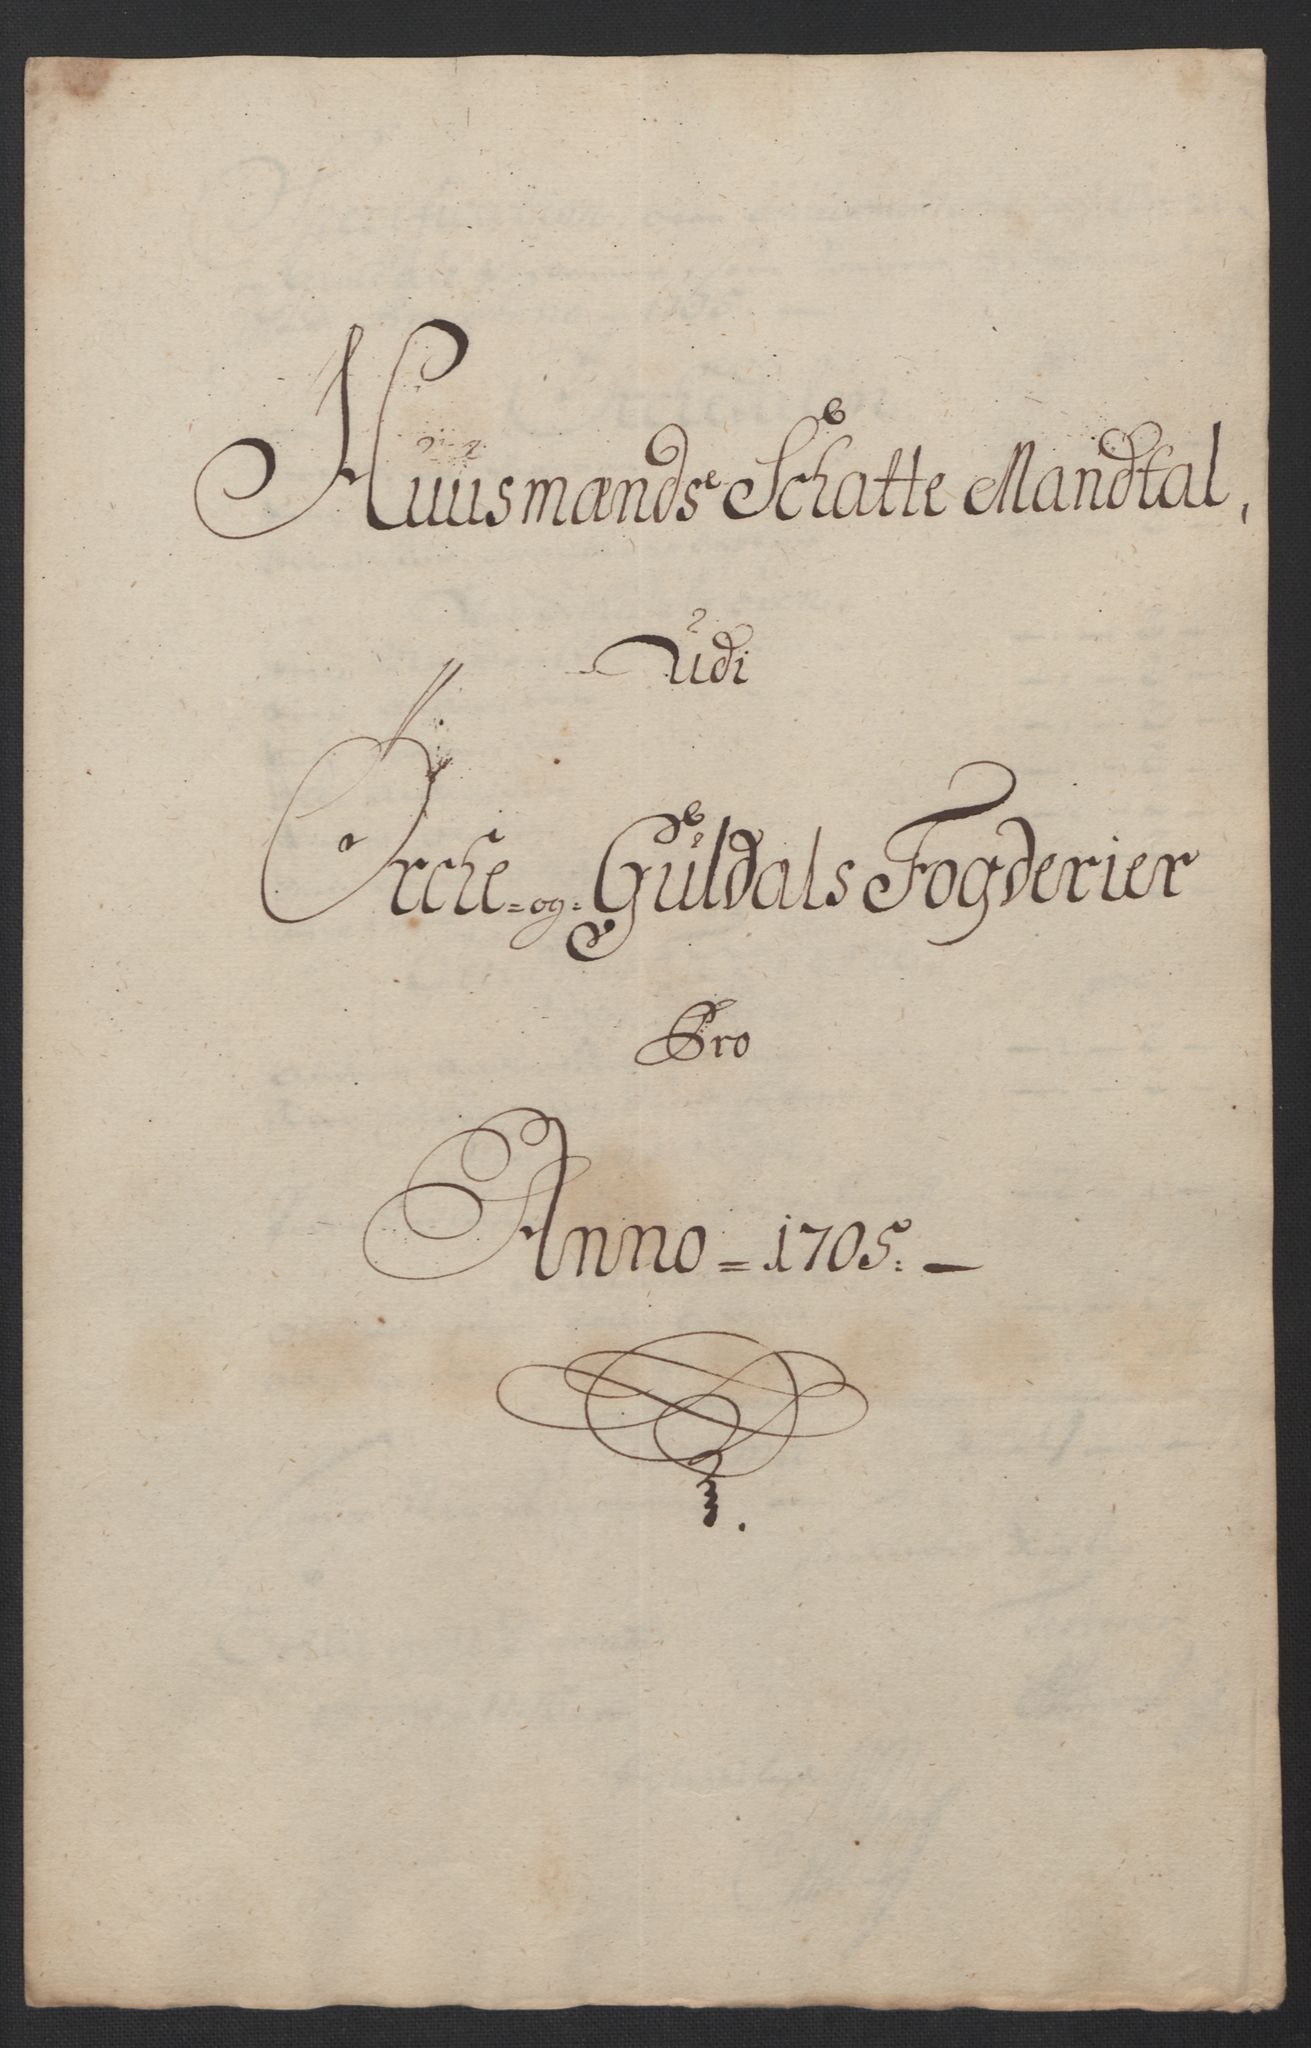 Huusmænds Schatte Mandtal,
Udi
Orche- og- Guldals Fogderier
Pro
Anno = 1705. -